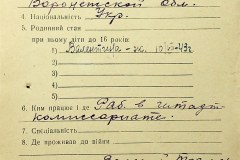 Воронежской Обл.
4. Національність Укр.
5. Родинний стан
при ньому діти до 16 років:
1) Валентина - ж. 10/VII-43 г
2)
3)
4)
6. Ким працює і де Раб. в
комиссариате.
7. Спеціальність
8. Де проживав до війни